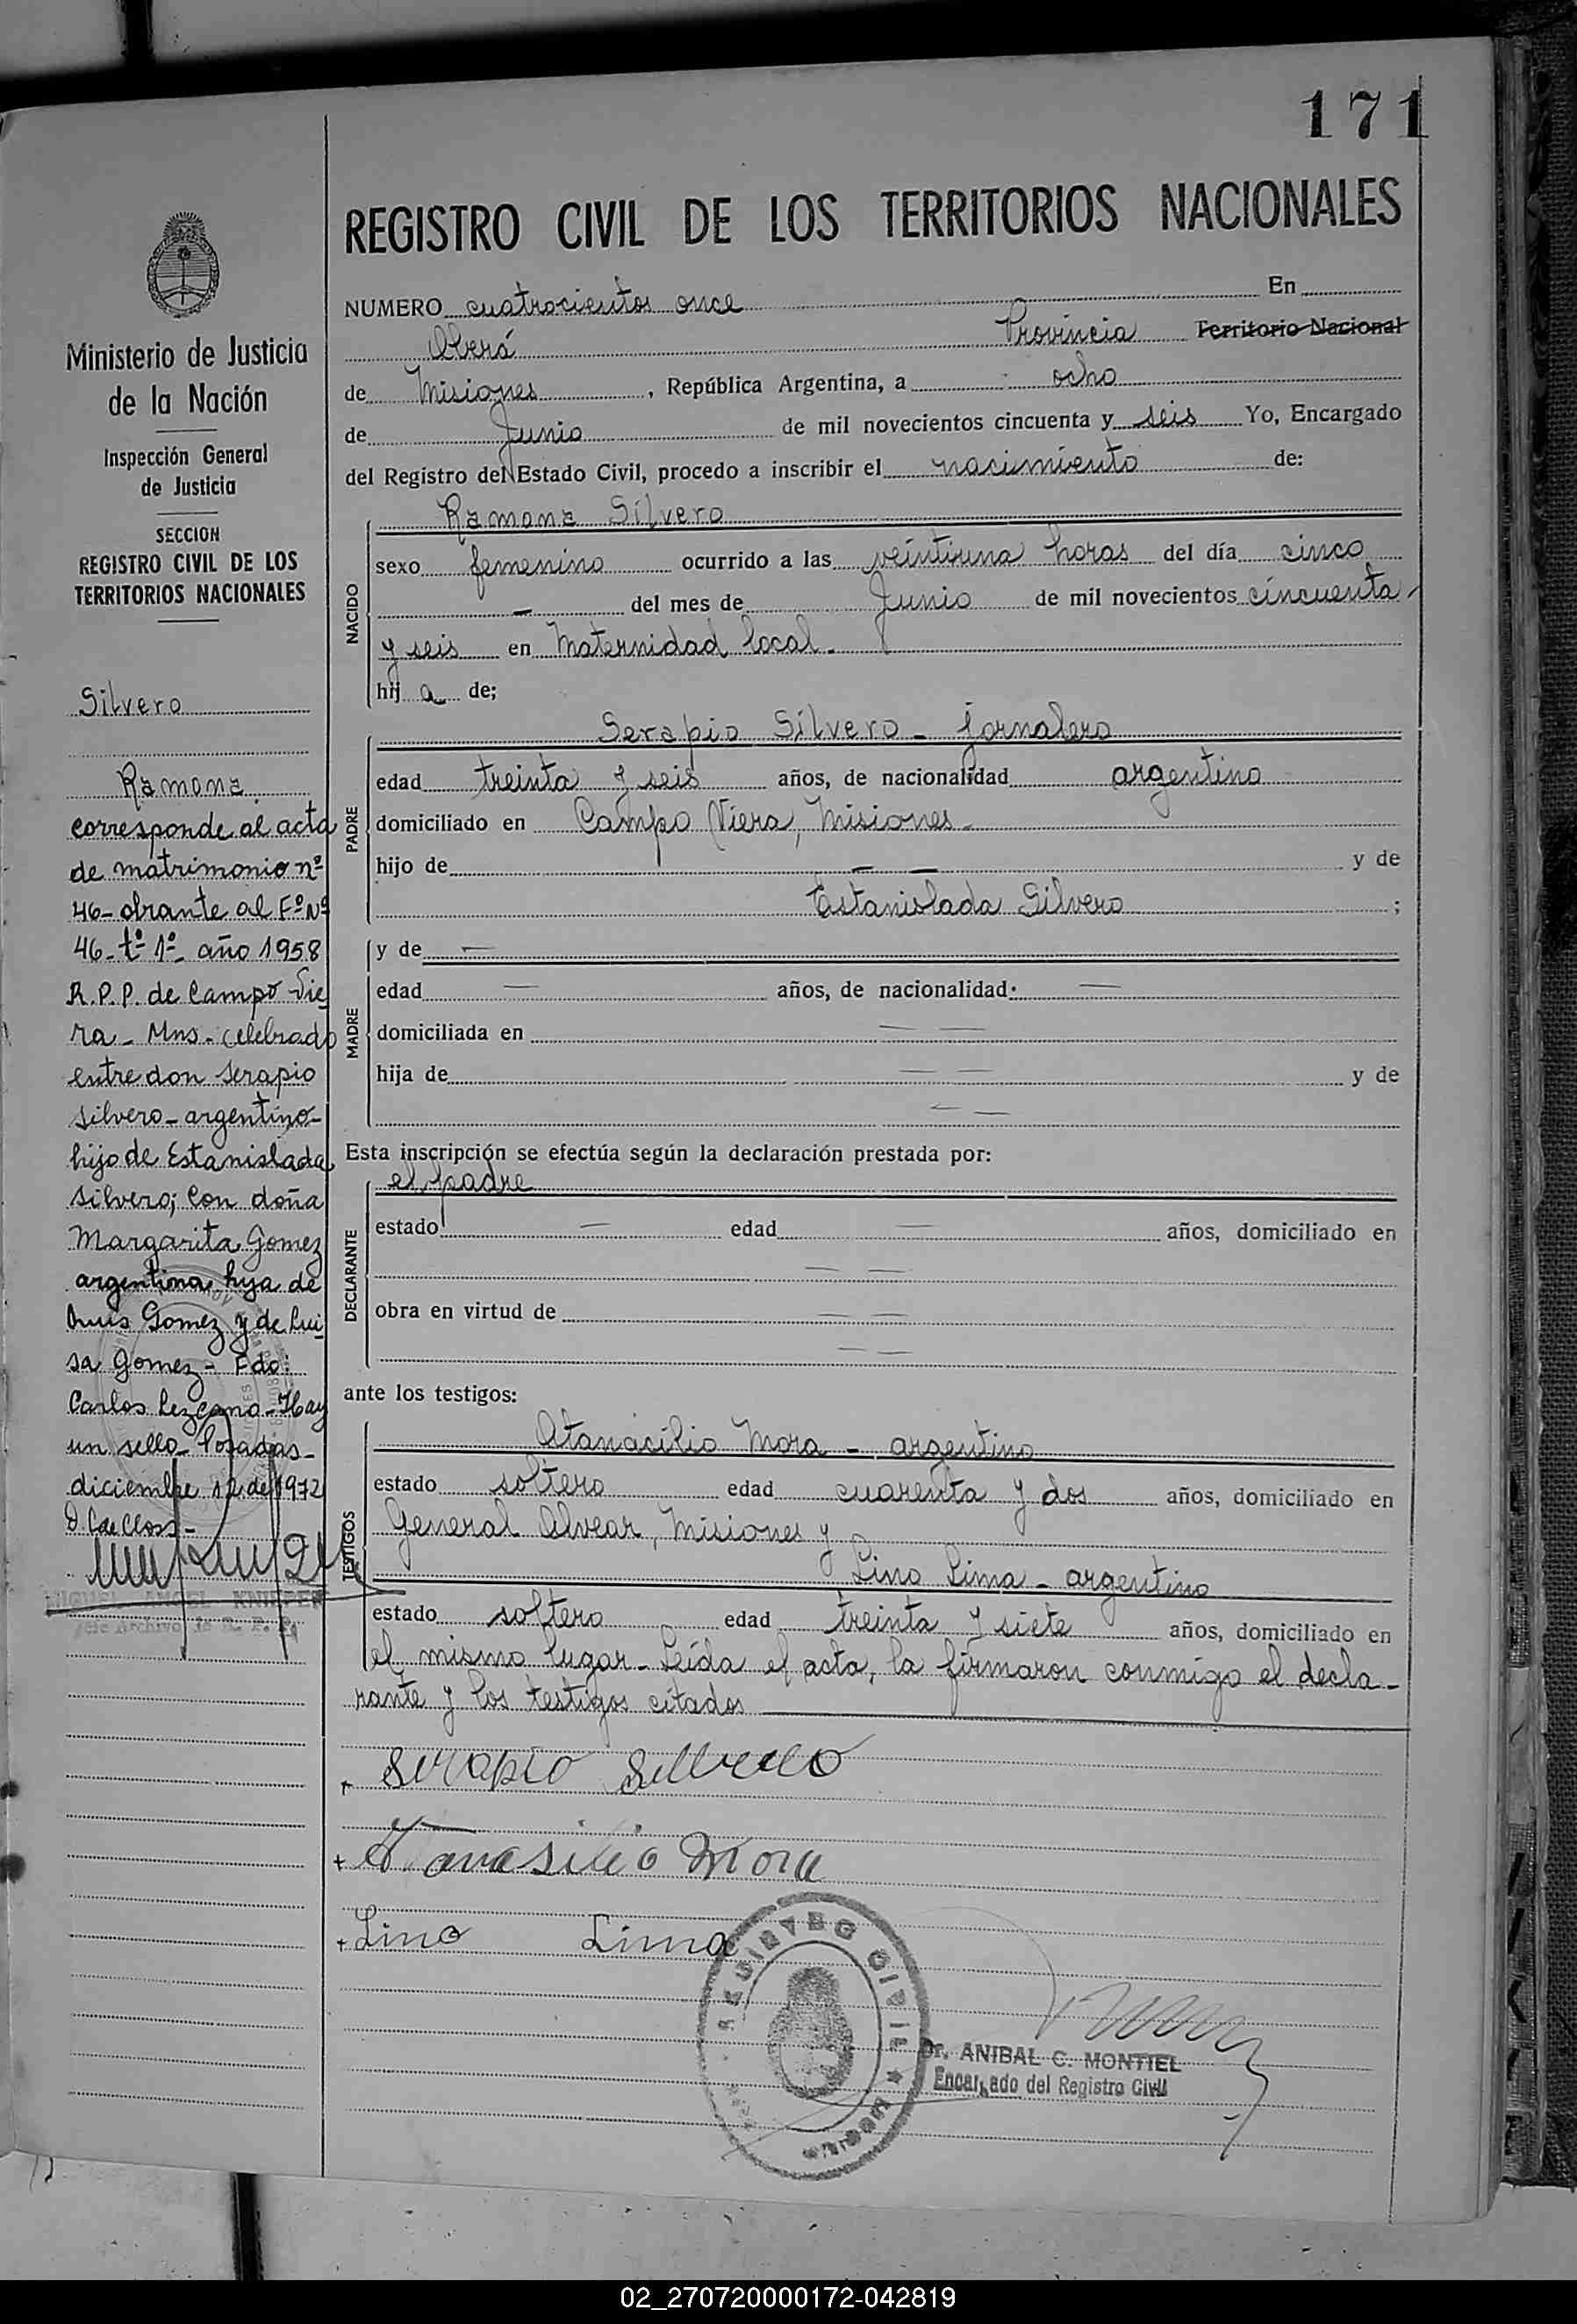 171
REGISTRO CIVIL DE LOS TERRITORIOS NACIONALES
NUMERO cuatrocientos once En
Oberá Provincia Territorio Nacional
de Misiones, República Argentina, a ocho
de Junio de mil novecientos cincuenta y seis Yo, Encargado
del Registro del Estado Civil, procedo a inscribir el nacimiento de:
NACIDO
Ramona Silvero
sexo femenino ocurrido a las veintiuna horas del día cinco
— del mes de Junio de mil novecientos cincuenta
y seis en Maternidad local.
hij a de;
PADRE
Serapio Silvero - jornalero
edad treinta y seis años, de nacionalidad argentino
domiciliado en Campo Viera, Misiones -
hijo de — — y de
Estanislada Silvero ;
MADRE
y de —
edad — años, de nacionalidad: —
domiciliada en — —
hija de — — y de
— —
Esta inscripción se efectúa según la declaración prestada por:
DECLARANTE
el padre
estado — edad — años, domiciliado en
— —
obra en virtud de — —
— —
ante los testigos:
TESTIGOS
Atanacilio Mora - argentino
estado soltero edad cuarenta y dos años, domiciliado en
General Alvear, Misiones y
Lino Lima - argentino
estado soltero edad treinta y siete años, domiciliado en
el mismo lugar - Leída el acta, la firmaron conmigo el decla-
rante y los testigos citados
Serapio Silvero
+ Atanasilio Mora
+ Lino Lima
REGISTRO CIVIL
Dr. ANIBAL C. MONTIEL
Encargado del Registro Civil
Ministerio de Justicia
de la Nación
Inspección General
de Justicia
SECCION
REGISTRO CIVIL DE LOS
TERRITORIOS NACIONALES
Silvero
Ramona
corresponde al acta
de matrimonio nº
46 - obrante al Fº Nº
46 - tº 1º - año 1958
R.P.P. de Campo Vie
ra - Mns. celebrado
entre don Serapio
Silvero - argentino -
hijo de Estanislada
Silvero; Con doña
Margarita Gomez
argentina, hija de
Gomez y de Lui
sa Gomez - Fdo:
Carlos Lezcano - Hay
un sello - Posadas -
diciembre 12 de 1972
MIGUEL ANGEL KNIEPER
Jefe Archivo de R. P. P.
02_270720000172-042819